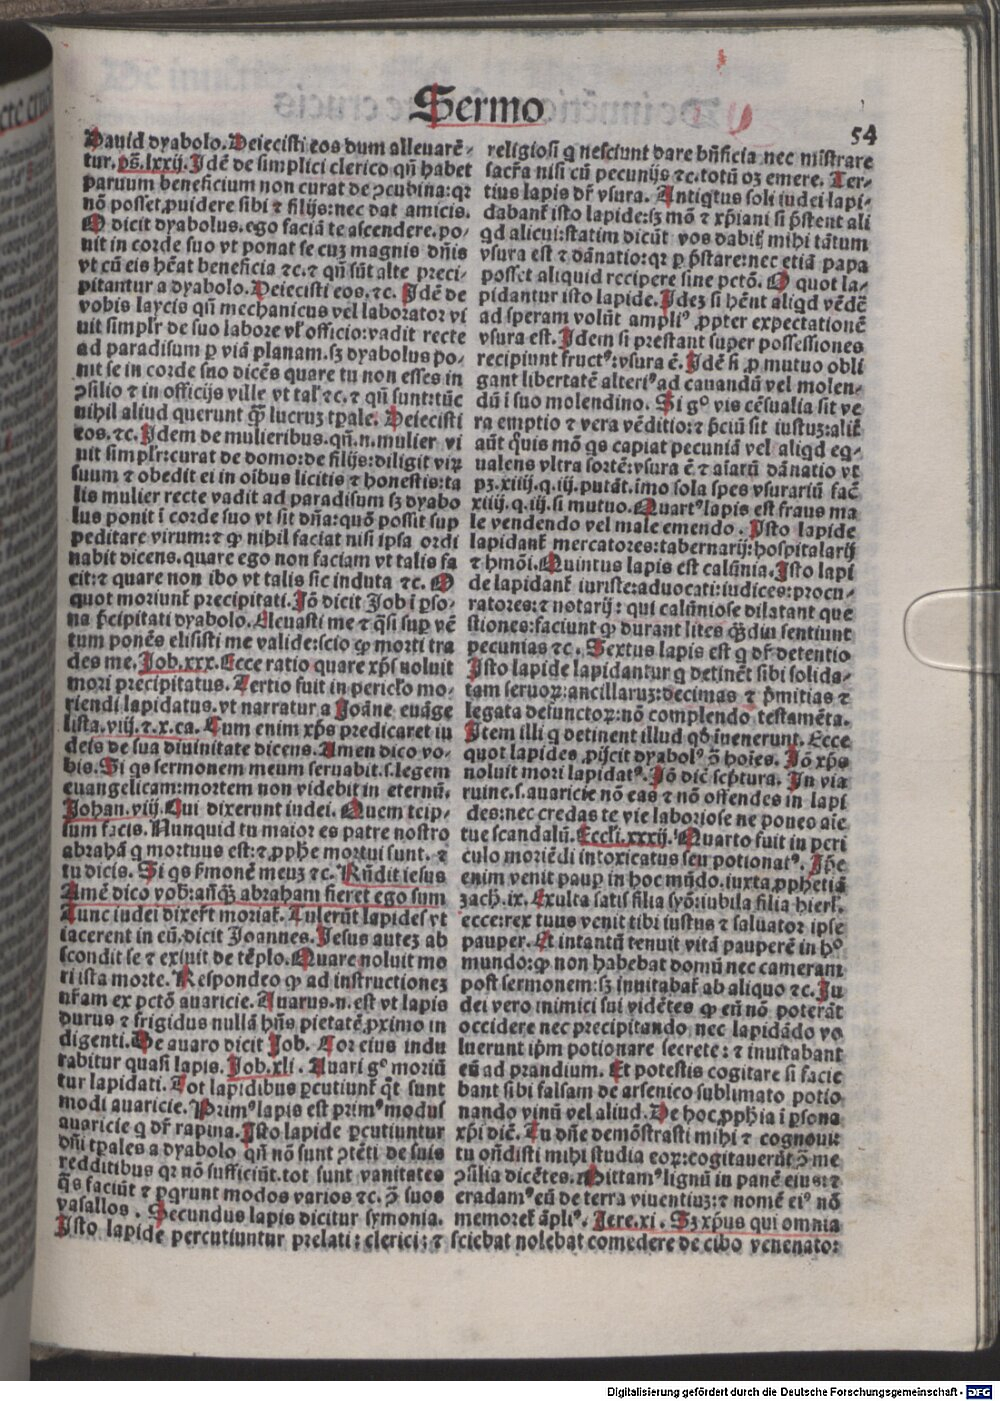 Sermo
54
Dauid dyabolo. Deiecisti eos dum alleuarē-
tur. ps̄. lxxij. Idē de simplici clerico qn̄ habet
paruum beneficium non curat de ꝯcubina: qꝛ
nō posset ꝓuidere sibi ⁊ filijs: nec dat amicis.
O dicit dyabolus. ego faciā te ascendere. po-
nit in corde suo vt ponat se cuꝫ magnis dn̄is
vt cū eis hēat beneficia ⁊c. ⁊ qn̄ sūt alte preci-
pitantur a dyabolo. Deiecisti eos. ⁊c. Idē de
vobis laycis qn̄ mechanicus vel laborator vi
uit simplr̄ de suo labore vl̓ officio: vadit recte
ad paradisum ꝑ viā planam. sꝫ dyabolus po-
nit se in corde suo dicēs quare tu non esses in
ꝯsilio ⁊ in officijs ville vt tal̓ ⁊c. ⁊ qn̄ sunt: tūc
nihil aliud querunt qꝫ lucruꝫ tꝑale. Deiecisti
eos. ⁊c. Idem de mulieribus. qn̄. n. mulier vi
uit simplr̄: curat de domo: de filijs: diligit viꝝ
suum ⁊ obedit ei in oībus licitis ⁊ honestis: ta
lis mulier recte vadit ad paradisum sꝫ dyabo
lus ponit ī corde suo vt sit dn̄a: quō possit sup
peditare virum: ⁊ ꝙ nihil faciat nisi ipsa ordi
nabit dicens. quare ego non faciam vt talis fa
cit: ⁊ quare non ibo vt talis sic induta ⁊c. O
quot moriunt̄ precipitati. Iō dicit Job ī ꝑso-
na p̄cipitati dyabolo. Eleuasti me ⁊ q̄si sup vē
tum ponēs elisisti me valide: scio ꝙ morti tra
des me. Job. xxx. Ecce ratio quare xp̄s noluit
mori precipitatus. Tertio fuit in pericl̓o mo-
riendi lapidatus. vt narratur a Joāne euāge
lista. viij. ⁊. x. ca. Cum enim xp̄s predicaret iu
deis de sua diuinitate dicens. Amen dico vo-
bis. Si qs sermonem meum seruabit. s. legem
euangelicam: mortem non videbit in eternū.
Johan. viij. Cui dixerunt iudei. Quem teip-
sum facis. Nunquid tu maior es patre nostro
abrahā q mortuus est: ⁊ ꝓphe mortui sunt. ⁊
tu dicis. Si qs s̄monē meuꝫ ⁊c. Rn̄dit iesus
Amē dico vob̄: an̄qꝫ abraham fieret ego sum
Tunc iudei dixer̄t moriat̄. Tulerūt lapides vt
iacerent in eū. dicit Joannes. Jesus auteꝫ ab
scondit se ⁊ exiuit de tēplo. Quare noluit mo
ri ista morte. Respondeo ꝙ ad instructioneꝫ
nr̄am ex pctō auaricie. Auarus. n. est vt lapis
durus ⁊ frigidus nullā hn̄s pietatē ꝓximo in
digenti. De auaro dicit Job. Cor eius indu
rabitur quasi lapis. Job. xli. Auari gͦ moriū
tur lapidati. Tot lapidibus ꝑcutiunt̄ qͦt sunt
modi auaricie. Primꝰ lapis est primꝰ modus
auaricie q dr̄ rapina. Isto lapide ꝑcutiuntur
dn̄i tꝑales a dyabolo qn̄ nō sunt ꝯtēti de suis
redditibus qꝛ nō sufficiūt. tot sunt vanitates
q̄s faciūt ⁊ ꝑqrunt modos varios ⁊c. ꝯ̄ suos
vasallos. Secundus lapis dicitur symonia.
Isto lapide percutiuntur prelati: clerici: ⁊
religiosi q nesciunt dare bn̄ficia nec mīstrare
sacr̄a nisi cū pecunijs ⁊c. totū oꝫ emere. Ter-
tius lapis dr̄ vsura. Antiqtus soli iudei lapi-
dabant̄ isto lapide: sꝫ mō ⁊ xp̄iani si p̄stent ali
qd alicui: statim dicūt vos dabitꝭ mihi tātum
vsura est ⁊ dānatio: qꝛ ꝓ p̄stare: nec etiā papa
posset aliquid recipere sine pctō. O quot la-
pidantur isto lapide. Ideꝫ si hēnt aliqd vēdē
ad speram volūt ampliꝰ ꝓpter expectationē
vsura est. Idem si prestant super possessiones
recipiunt fructꝰ: vsura ē. Idē si ꝓ mutuo obli
gant libertatē alteriꝰ ad cauandū vel molen-
dū ī suo molendino. Si gͦ vis cēsualia sit ve
ra emptio ⁊ vera vēditio: ⁊ p̄ciū sit iustuꝫ: alit̄
aūt q̄uis mō qs capiat pecuniā vel aliqd eq-
ualens vltra sortē: vsura ē ⁊ aīarū dānatio vt
pꝫ. xiiij. q. iij. putāt. īmo sola spes vsurariū fac̄
xiiij. q. iij. si mutuo. Quartꝰ lapis est fraus ma
le vendendo vel male emendo. Isto lapide
lapidant̄ mercatores: tabernarij: hospitalarij
⁊ hmōi. Quintus lapis est calūnia. Isto lapi
de lapidant̄ iuriste: aduocati: iudices: procu-
ratores: ⁊ notarij: qui calūniose dilatant que
stiones: faciunt ꝙ durant lites qꝫdiu sentiunt
pecunias ⁊c. Sextus lapis est q dr̄ detentio
Isto lapide lapidantur q detinēt sibi solida-
tam seruoꝝ: ancillaruꝫ: decimas ⁊ p̄mitias ⁊
legata defunctoꝝ: nō complendo testamēta.
Item illi q detinent illud qd̄ īuenerunt. Ecce
quot lapides ꝓijcit dyabolꝰ ꝯ̄ hoīes. Iō xp̄s
noluit mori lapidatꝰ. Iō dic̄ scptura. In via
ruine. s. auaricie nō eas ⁊ nō offendes in lapi
des: nec credas te vie laboriose ne ponas aīe
tue scandalū. Eccl̓i. xxxij. Quarto fuit in peri
culo moriēdi intoxicatus seu potionatꝰ. Ip̄e
enim venit paup in hoc mūdo. iuxta ꝓphetiā
zach. ix. Exulta satis filia syō: iubila filia hierl̓.
ecce: rex tuus venit tibi iustus ⁊ saluator ipse
pauper. Et intantū tenuit vitā pauperē in hͦ
mundo: ꝙ non habebat domū nec cameram
post sermonem: sꝫ inuitabat̄ ab aliquo ⁊c. Iu
dei vero inimici sui vidētes ꝙ eū nō poterāt
occidere nec precipitando, nec lapidādo vo
luerunt ip̄m potionare secrete: ⁊ inuitabant
eū ad prandium. Et potestis cogitare si facie
bant sibi falsam de arsenico sublimato potio
nando vinū vel aliud. De hoc ꝓphia ī ꝑsona
xp̄i dic̄. Tu dn̄e demōstrasti mihi ⁊ cognoui:
tu on̄disti mihi studia eoꝝ: cogitauerūt ꝯ̄ me
ꝯsilia dicētes. Mittamꝰ lignū in panē eius: ⁊
eradamꝰ eū de terra viuentiuꝫ: ⁊ nomē eiꝰ nō
memoret̄ āpliꝰ. Jere. xi. Sꝫ xp̄us qui omnia
sciebat nolebat comedere de cibo venenato:
Digitalisierung gefördert durch die Deutsche Forschungsgemeinschaft - DFG